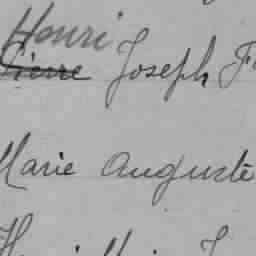 Henri
Pierre Joseph F
Marie Auguste